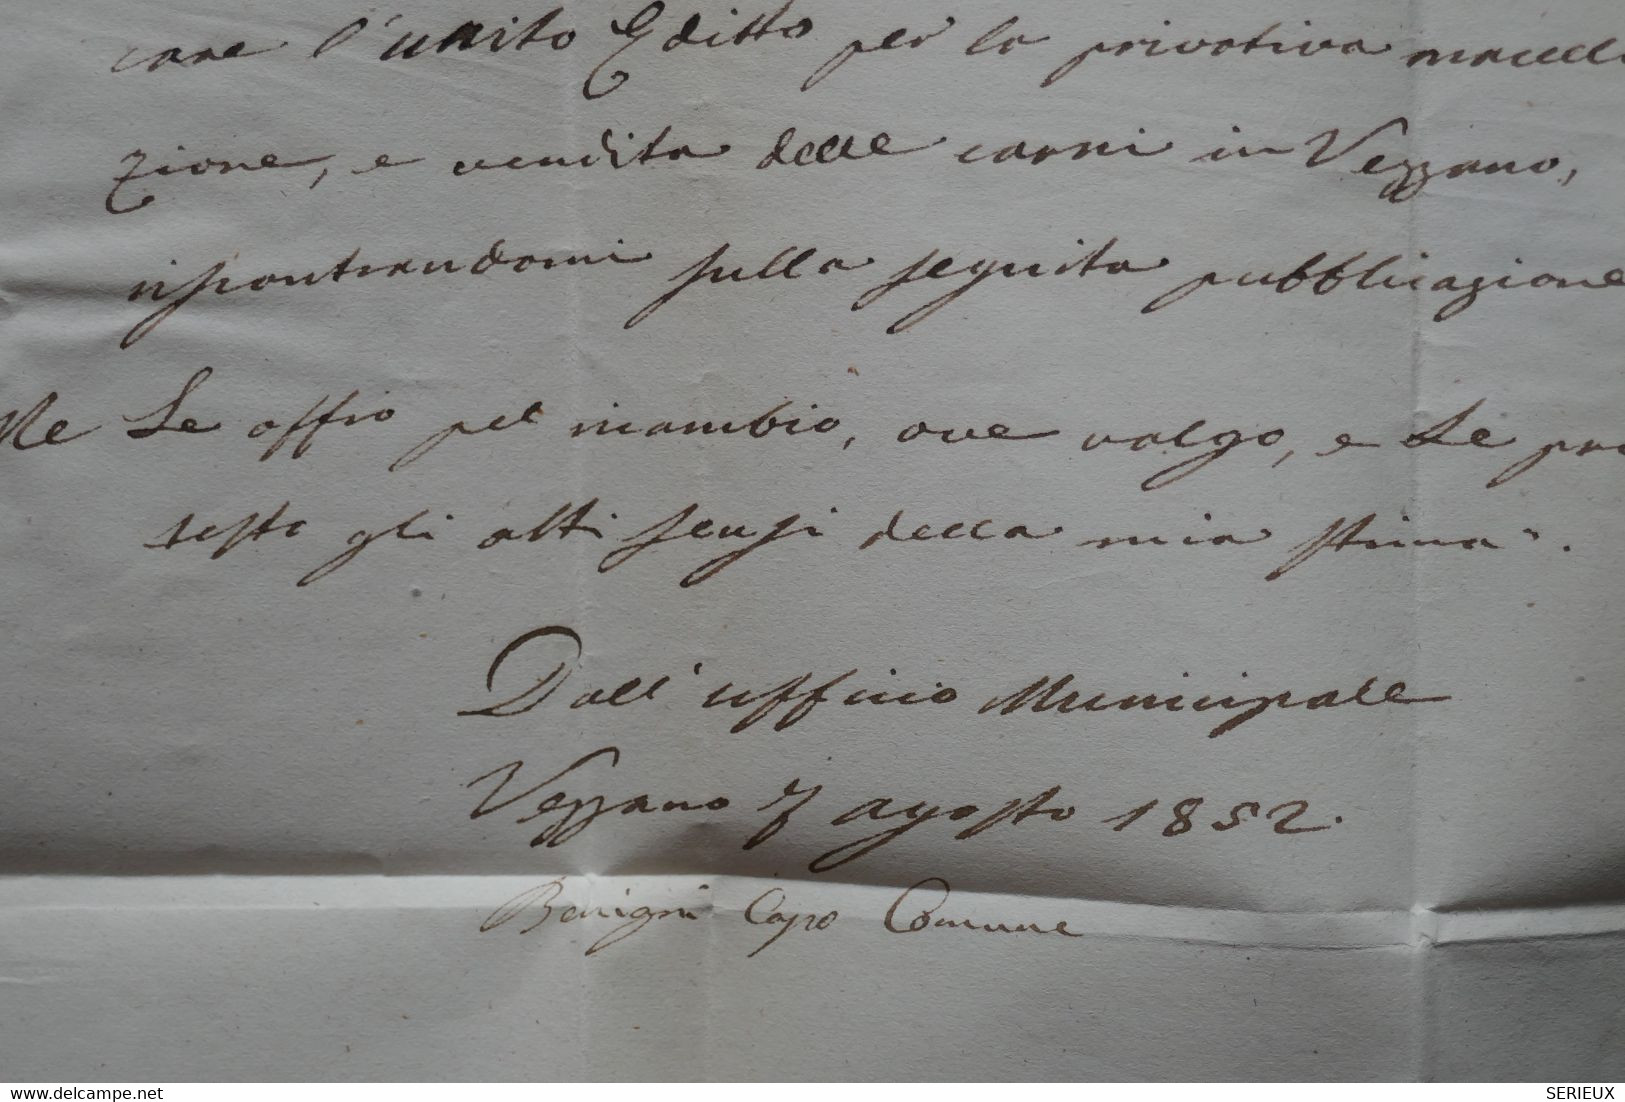 care l'unito Editto per la privativa macella
zione, e vendita delle carni in Vezzano,
riscontrandomi sulla seguita pubblicazione
Me Le offro pel incambio, ove valgo, e Le pro
testo gli atti sensi della mia stima.
Dall'ufficio Municipale
Vezzano 7 agosto 1852.
Benigni Capo Comune
https://www.delcampe.net
SERIEUX